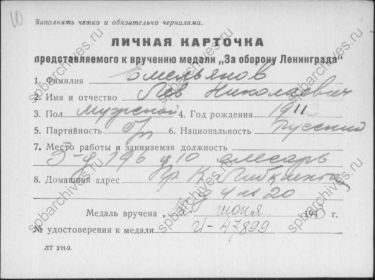 Заполнять четко и обязательно чернилами.
ЛИЧНАЯ КАРТОЧКА
представляемого к вручению медали „За оборону Ленинграда“
1. Фамилия Емельянов
2. Имя и отчество Лев Николаевич
3. Пол мужской 4. Год рождения 1911
5. Партийность б/п 6. Национальность Русский
7. Место работы и занимаемая должность
З-д 196 слесарь
8. Домашний адрес
Медаль вручена июня 194 г.
№ удостоверения к медали И-47899
ЛТ УН-9.
spbarchives.ru